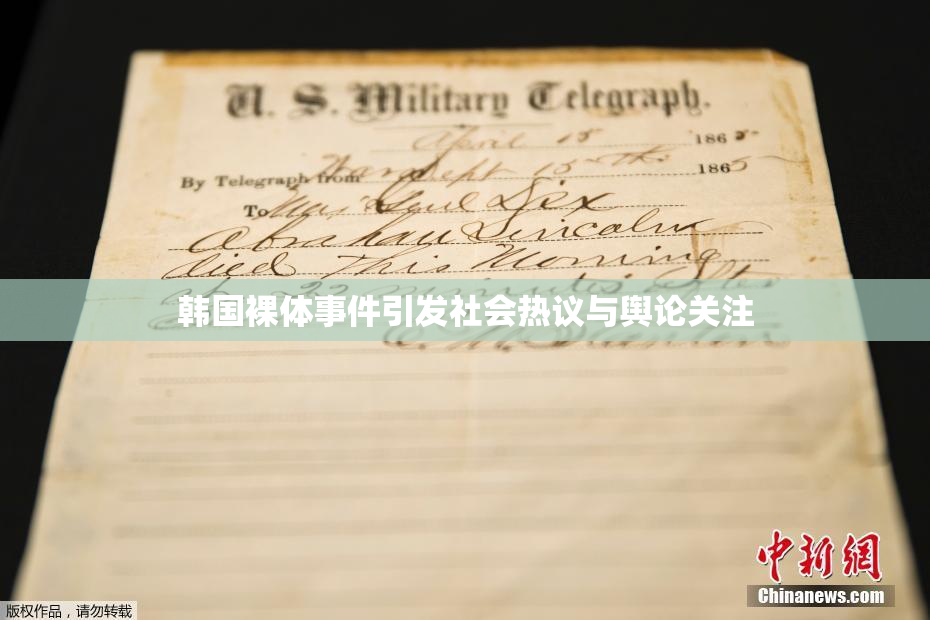 U. S. Military Telegraph.
April 15 1865
By Telegraph from War Dept 15th 1865
To Maj Genl Dix
Abraham Lincoln
died This Morning
at 22 minutes after
韩国裸体事件引发社会热议与舆论关注
E. M. Stanton
中新网
Chinanews.com
版权作品，请勿转载